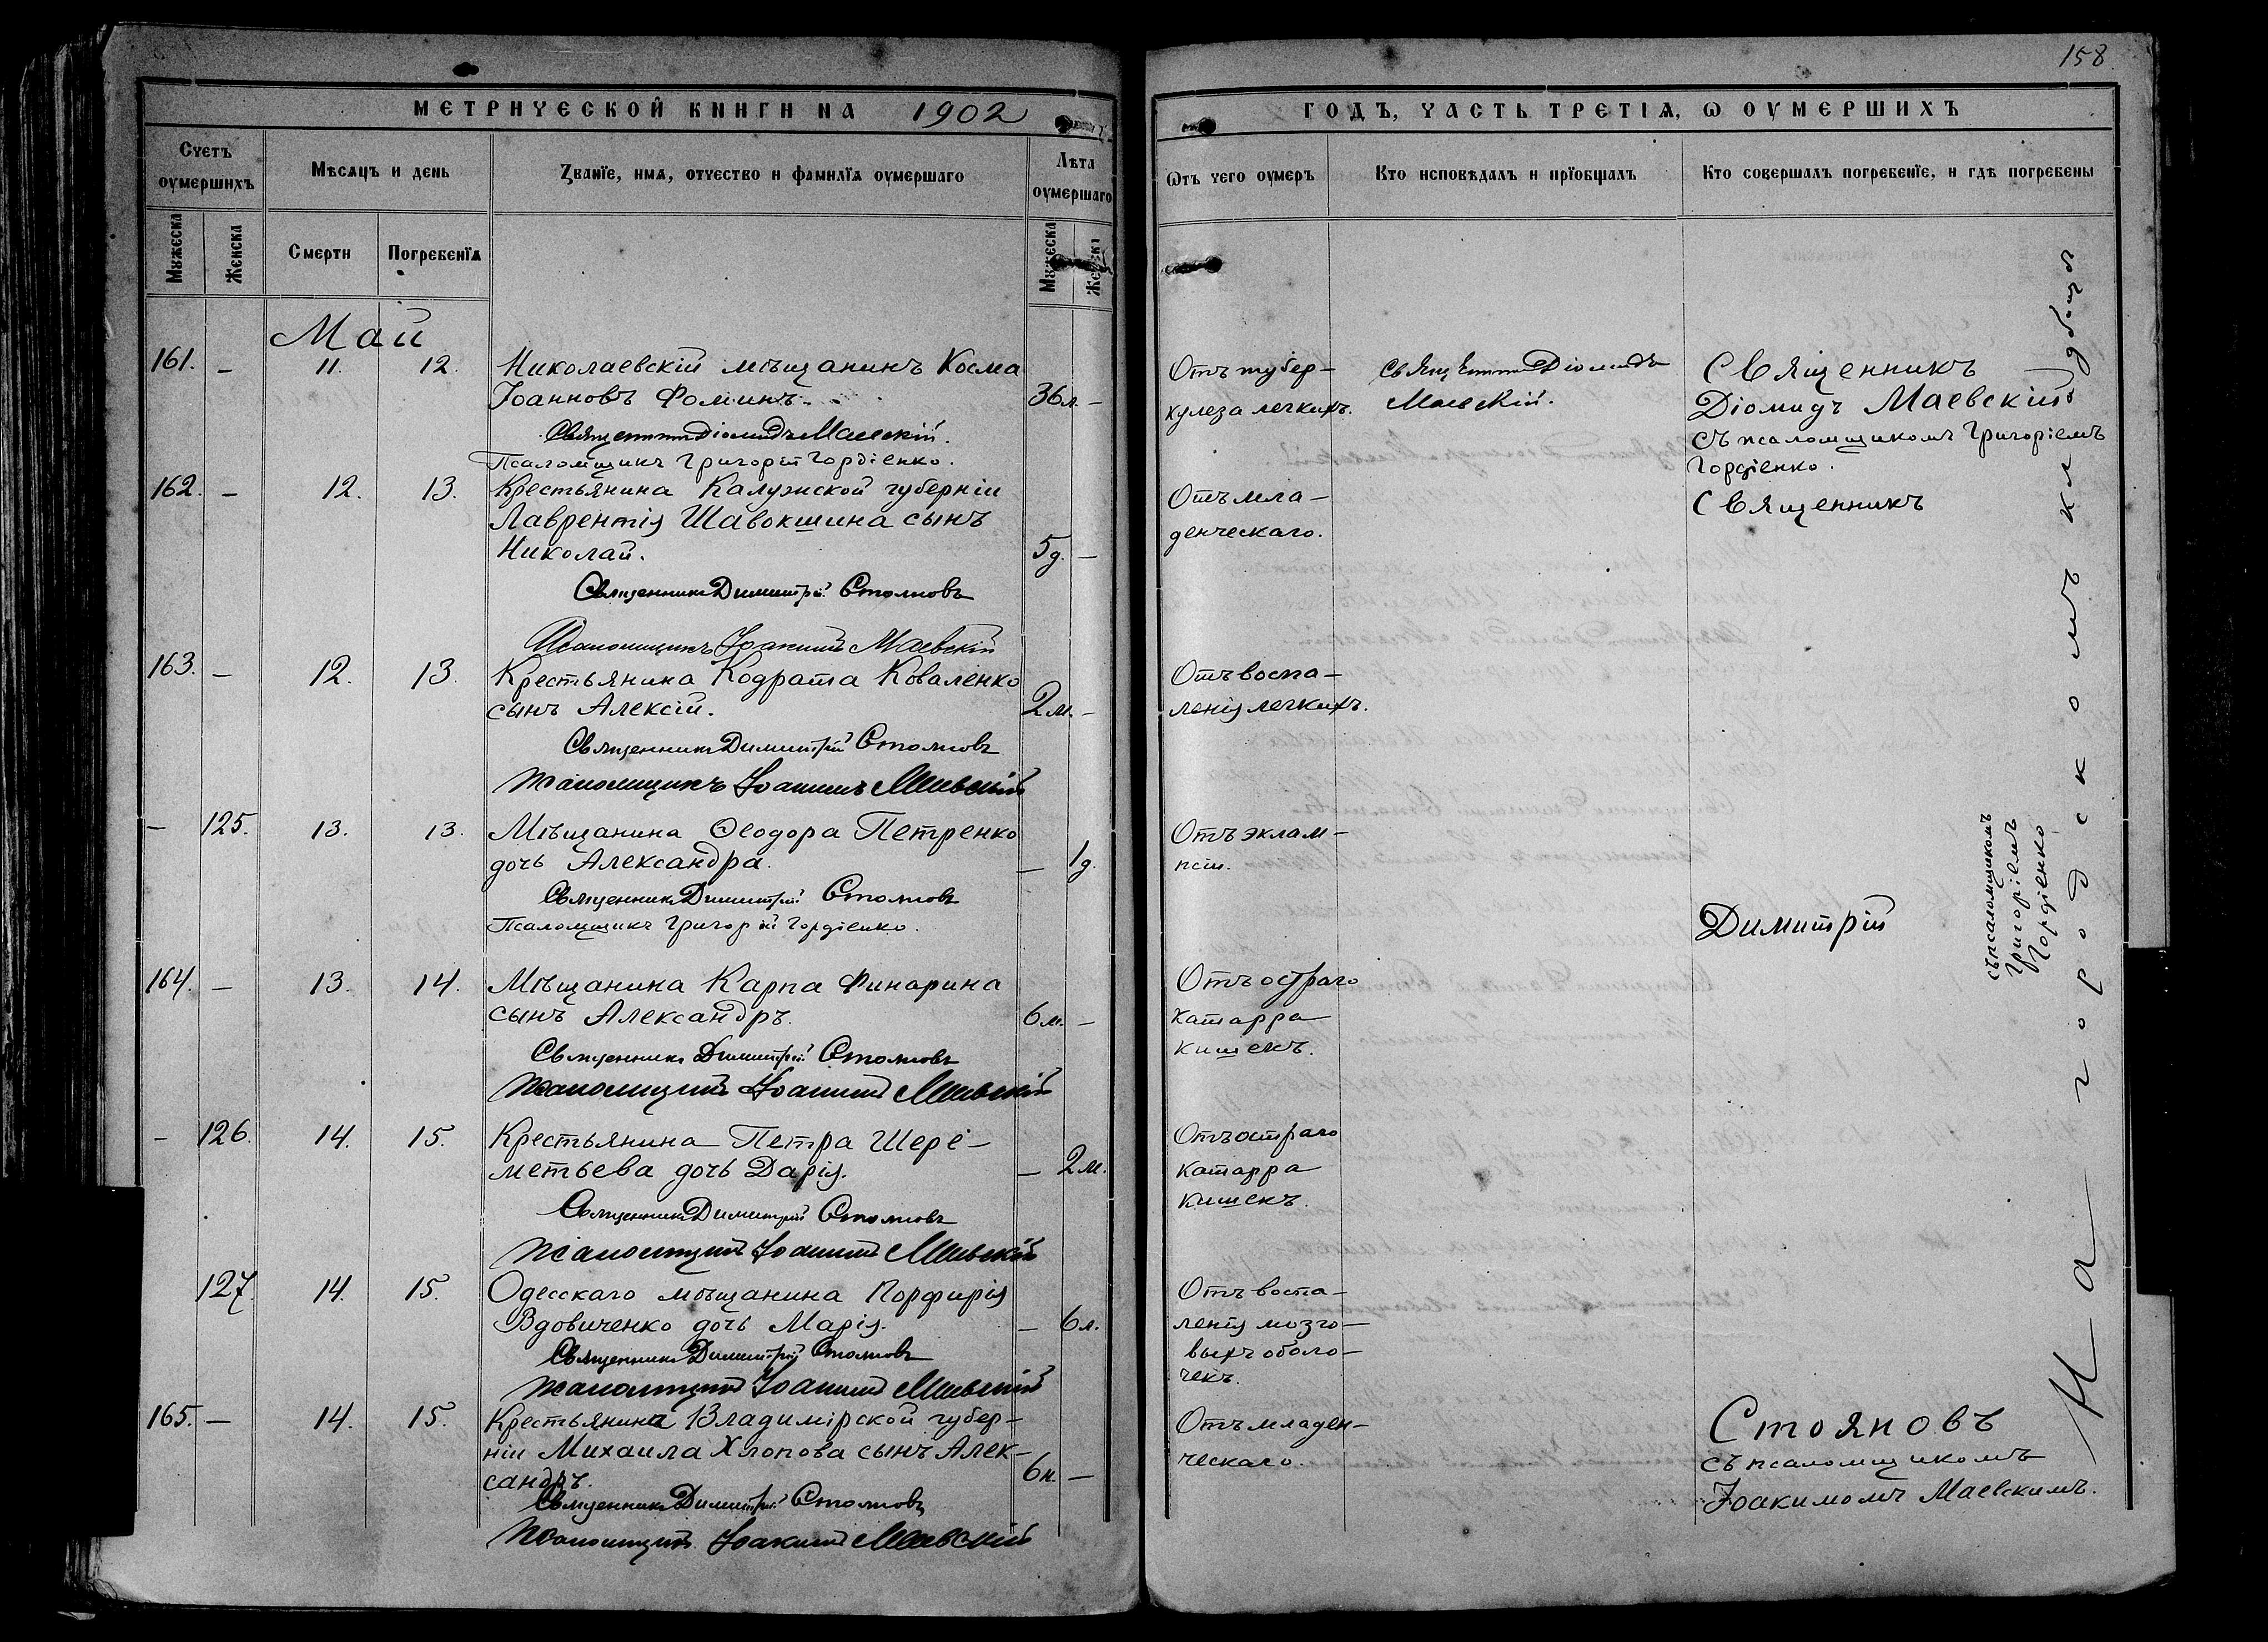 158
МЕТРИЧЕСКОЙ КНИГИ НА 1902
ГОДЪ, ЧАСТЬ ТРЕТІѦ, Ѡ ОУМЕРШИХЪ
Счетъ оумершихъ
Мѣсяцъ и день
Званїе, имѧ, отчество и фамилїѧ оумершаго
Лѣта оумершаго
Ѿтъ чего оумеръ
Кто исповѣдалъ и прїобщалъ
Кто совершалъ погребенїе, и гдѣ погребены
Мужеска
Женска
Смерти
Погребенїѧ
Мужеска
Женска
Май
161. – 11. 12. Николаевскій мѣщанинъ Косма
Іоанновъ Фоминъ. 36л. –
Священникъ Діомидъ Маевскій.
Псаломщикъ Григорій Гордіенко.
Отъ тубер–
кулеза легкихъ.
Священникъ Діомидъ
Маевскій.
Священникъ
Діомидъ Маевскій
съ псаломщикомъ Григоріемъ
Гордіенко.
162. – 12. 13. Крестьянина Калужской губерніи
Лаврентія Шавокшина сынъ
Николай. 5д. –
Священникъ Димитрій Стояновъ
Псаломщикъ Іоакимъ Маевскій
Отъ мла–
денческаго.
Священникъ
163. – 12. 13. Крестьянина Кодрата Коваленко
сынъ Алексій. 2м. –
Священникъ Димитрій Стояновъ
Псаломщикъ Іоакимъ Маевскій
Отъ воспа–
ленія легкихъ.
– 125. 13. 13. Мѣщанина Ѳеодора Петренко
дочь Александра. – 1д.
Священникъ Димитрій Стояновъ
Псаломщикъ Григорій Гордіенко.
Отъ эклам–
псіи.
Димитрій
съ псаломщикомъ
Григоріемъ
Гордіенко
164. – 13. 14. Мѣщанина Карпа Финарина
сынъ Александръ. 6м. –
Священникъ Димитрій Стояновъ
Псаломщикъ Іоакимъ Маевскій
Отъ остраго
катарра
кишекъ.
– 126. 14. 15. Крестьянина Петра Шере–
метьева дочь Дарія. – 2м.
Священникъ Димитрій Стояновъ
Псаломщикъ Іоакимъ Маевскій
Отъ остраго
катарра
кишекъ.
127. 14. 15. Одесскаго мѣщанина Порфирія
Вдовиченко дочь Марія. – 6л.
Священникъ Димитрій Стояновъ
Псаломщикъ Іоакимъ Маевскій
Отъ воспа–
ленія мозго–
выхъ оболо–
чекъ.
165. – 14. 15. Крестьянина Владимірской губер–
ніи Михаила Хлопова сынъ Алек–
сандръ. 6н. –
Священникъ Димитрій Стояновъ
Псаломщикъ Іоакимъ Маевскій
Отъ младен–
ческаго.
Стояновъ
съ псаломщикомъ
Іоакимомъ Маевскимъ.
На городскомъ кладбищѣ